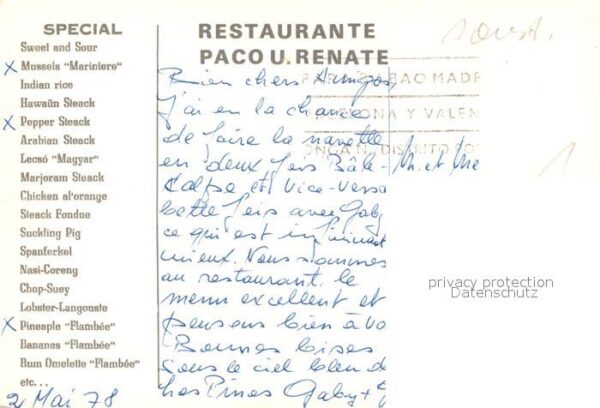 SPECIAL
Sweet and Sour
x Mussels "Mariniere"
Indian rice
Hawaün Steack
x Pepper Steack
Arabian Steack
Lecsó "Magyar"
Marjoram Steack
Chicken al'orange
Steack Fondue
Suckling Pig
Spanferkel
Nasi-Coreng
Chop-Suey
Lobster-Langouste
x Pineaple "Flambée"
Bananas "Flambée"
Rum Omelette "Flambée"
etc...
2 Mai 78
RESTAURANTE
PACO U. RENATE
Bien chers Amigos,
J'ai eu la chance
de faire la navette
en deux fois Bâle-
Calpe et Vice-Versa
cette fois avec Gaby
ce qui est infiniment
mieux. Nous sommes
au restaurant le
menu excellent et
pensons bien à vo
Bonnes bises
sous le ciel bleu d
Los Pinos Gaby +
BAO MADR
ONA Y VALEN
DISTRITO POS
M. et Me
privacy protection
Datenschutz